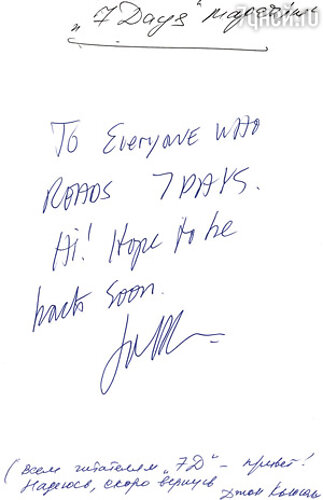 7дней.ru
"7 Days" magazine
To Everyone who
READS 7 DAYS.
Hi! Hope to be
back soon.
(всем читателям "7Д" – привет!
Надеюсь, скоро вернусь
Джон